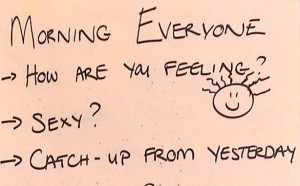 MORNING EVERYONE
→ HOW ARE YOU FEELING?
→ SEXY?
→ CATCH-UP FROM YESTERDAY